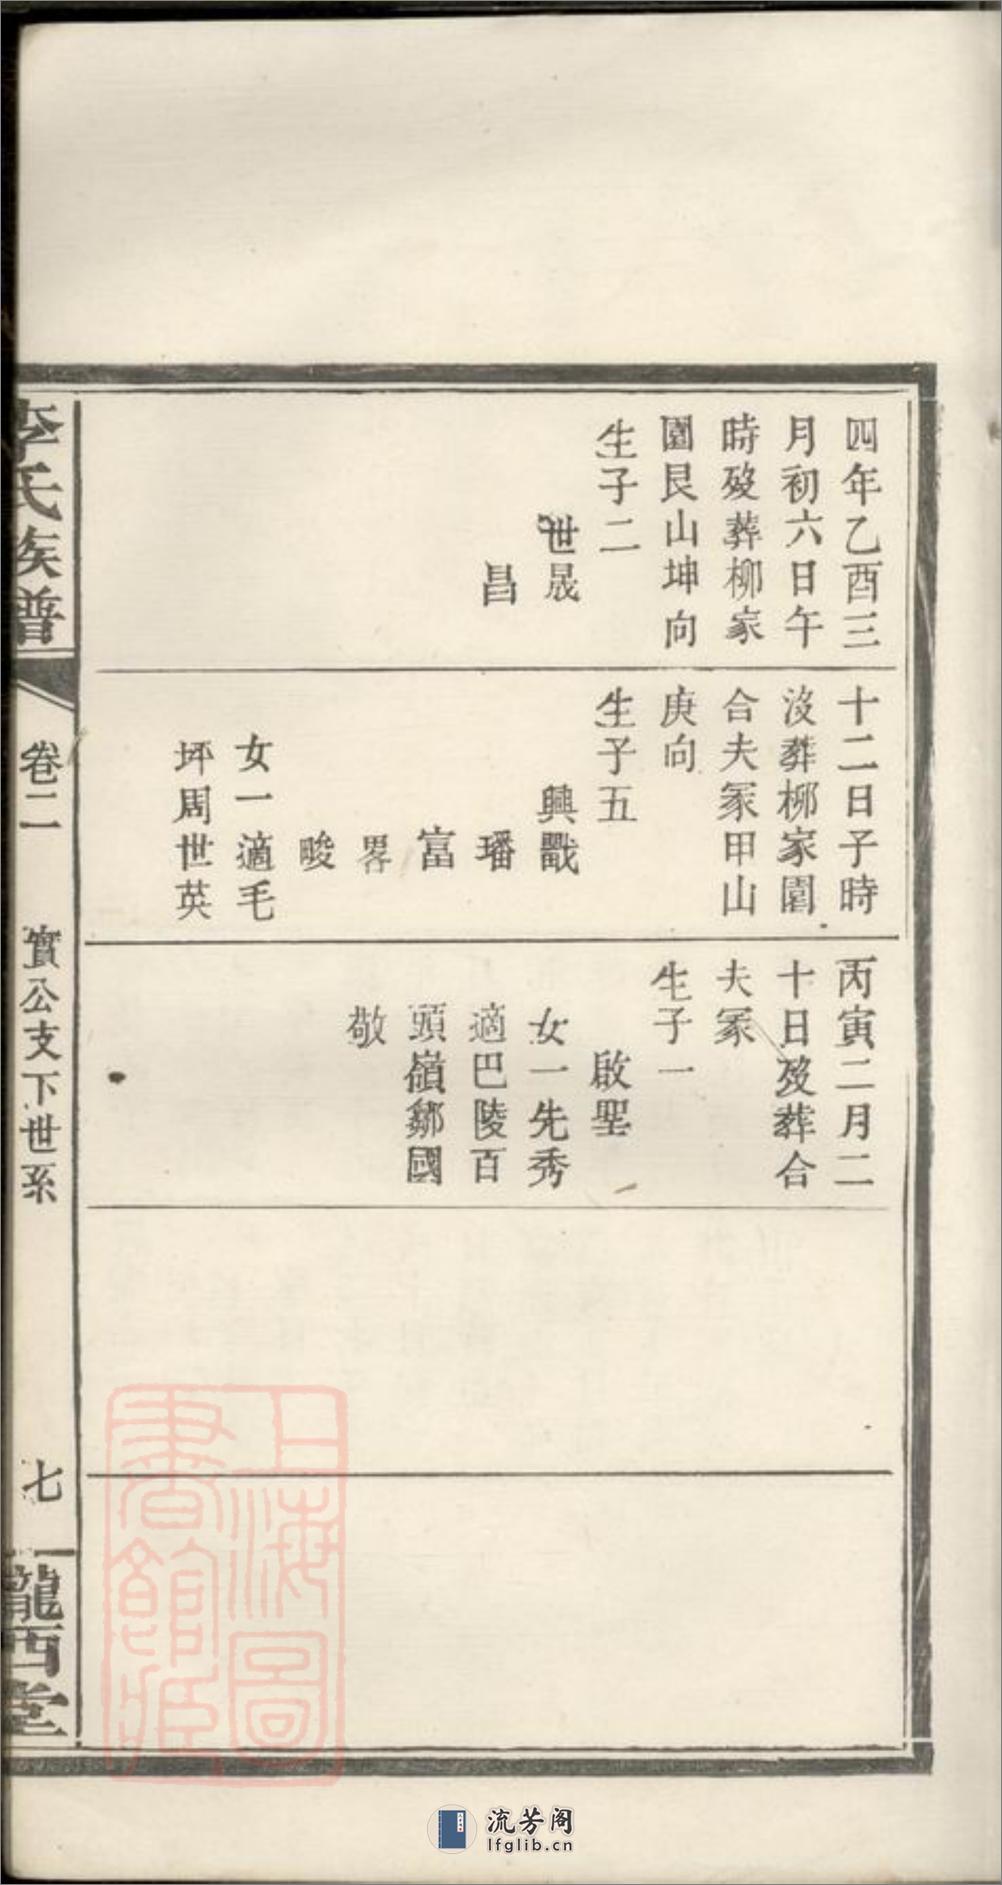 四年乙酉三
月初六日午
時歿葬柳家
園艮山坤向
生子二
世晟
昌
十二日子時
沒葬柳家園
合夫冢甲山
庚向
生子五
興戬
璠
富
畧
畯
女一適毛
坪周世英
丙寅二月二
十日歿葬合
夫冢
生子一
啟聖
女一先秀
適巴陵百
頭嶺鄒國
敬
李氏族譜
卷二
實公支下世系
七
隴西堂
上海圖
書館藏
流芳阁
lfglib.cn